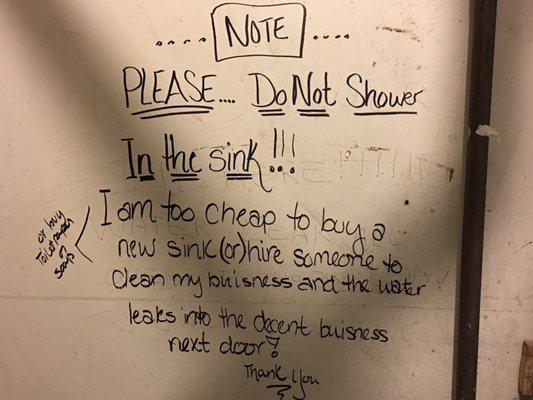 ..... NOTE ....
PLEASE.... Do Not Shower
In the sink!!!
I am too cheap to buy a
or buy
Toilet paper
or
soap
new sink (or) hire someone to
clean my buisness and the water
leaks into the decent buisness
next door?
Thank You